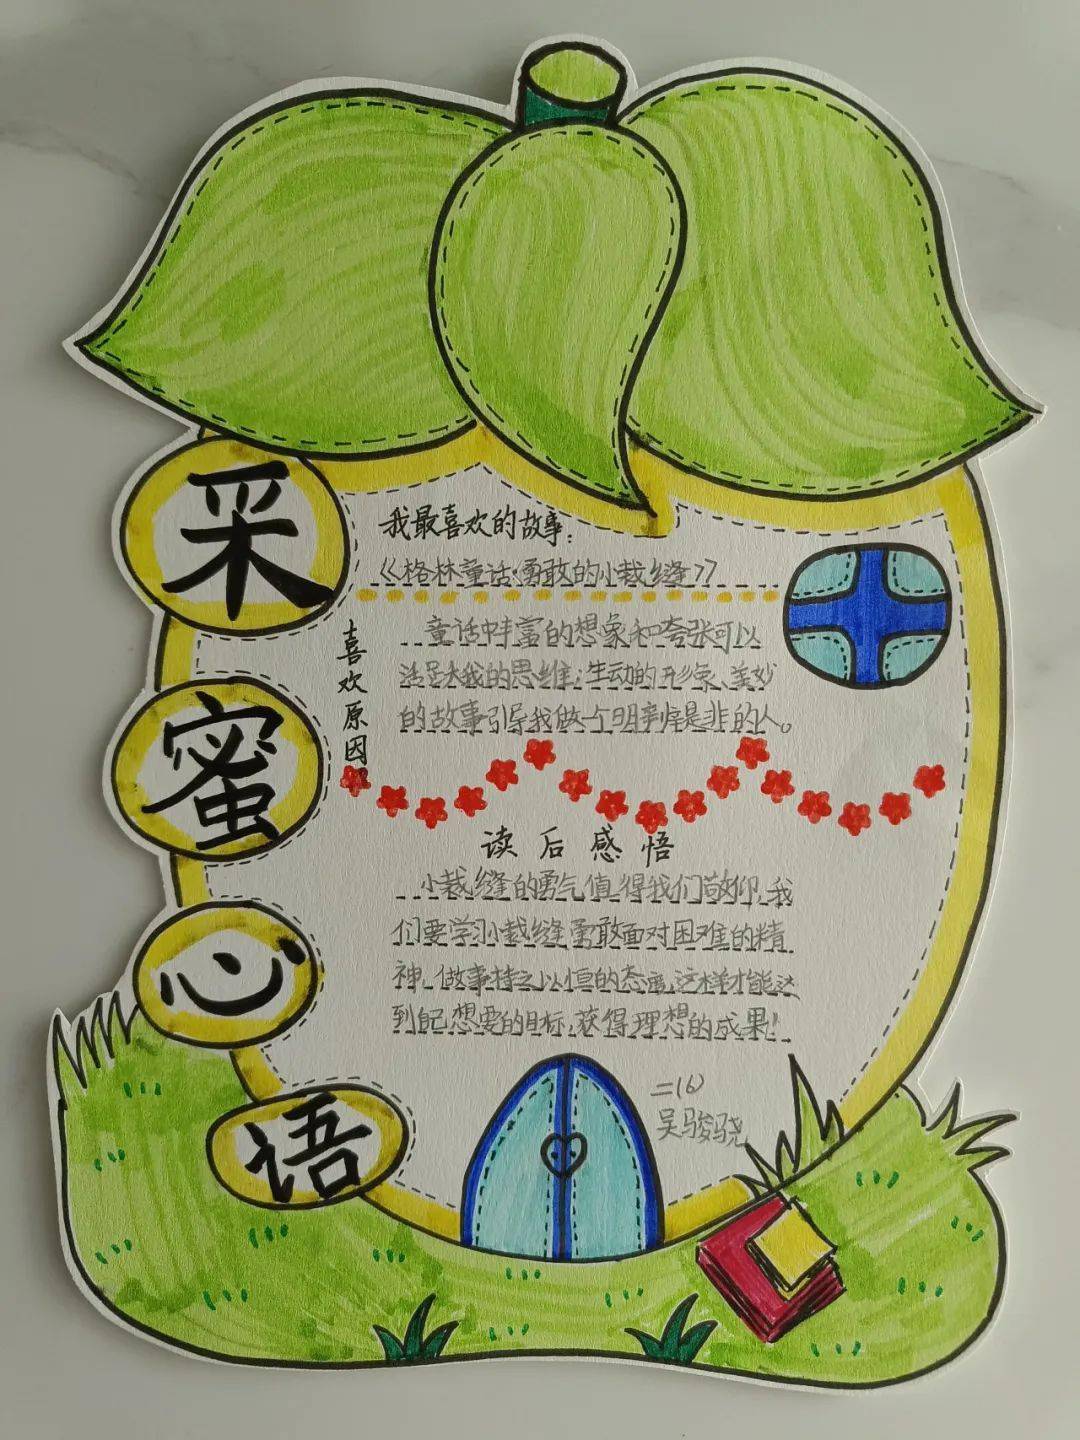 采蜜心语
我最喜欢的故事:
《格林童话:勇敢的小裁缝》
喜欢原因:
童话中丰富的想象和夸张可以
活跃我的思维;生动的形象、美妙
的故事引导我做一个明辨是非的人。
读后感悟
小裁缝的勇气值得我们敬仰,我
们要学习小裁缝勇敢面对困难的精
神,做事持之以恒的态度,这样才能达
到自己想要的目标,获得理想的成果!
二(6)
吴骏骁